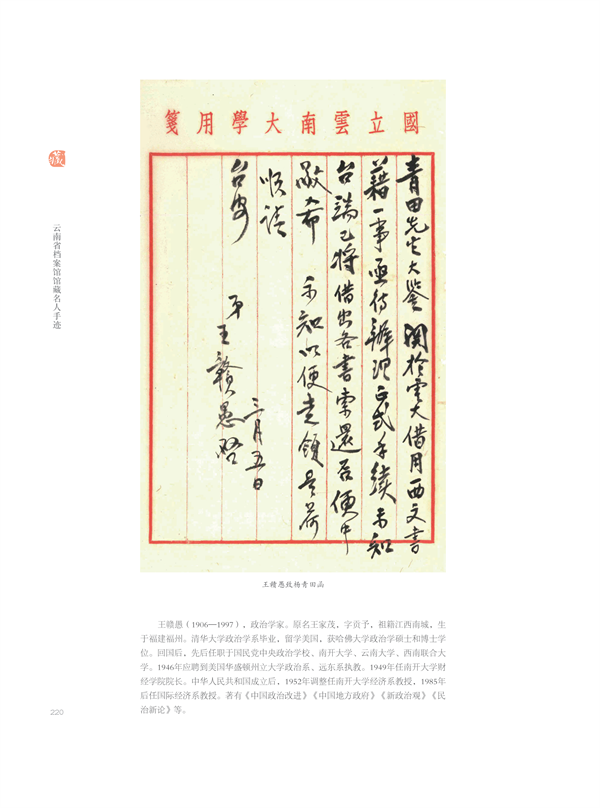 國立雲南大學用箋
青田先生大鑒 關於雲大借用西文書
藉一事亟待辦理正式手續未知
台端已將借出各書索還否便中
敬希 示知以便走領是荷
順請
台安
弟王贛愚啓
三月五日
藏
云南省档案馆馆藏名人手迹
王赣愚致杨青田函
王赣愚（1906—1997），政治学家。原名王家茂，字贡予，祖籍江西南城，生
于福建福州。清华大学政治学系毕业，留学美国，获哈佛大学政治学硕士和博士学
位。回国后，先后任职于国民党中央政治学校、南开大学、云南大学、西南联合大
学。1946年应聘到美国华盛顿州立大学政治系、远东系执教。1949年任南开大学财
经学院院长。中华人民共和国成立后，1952年调整任南开大学经济系教授，1985年
后任国际经济系教授。著有《中国政治改进》《中国地方政府》《新政治观》《民
治新论》等。
220